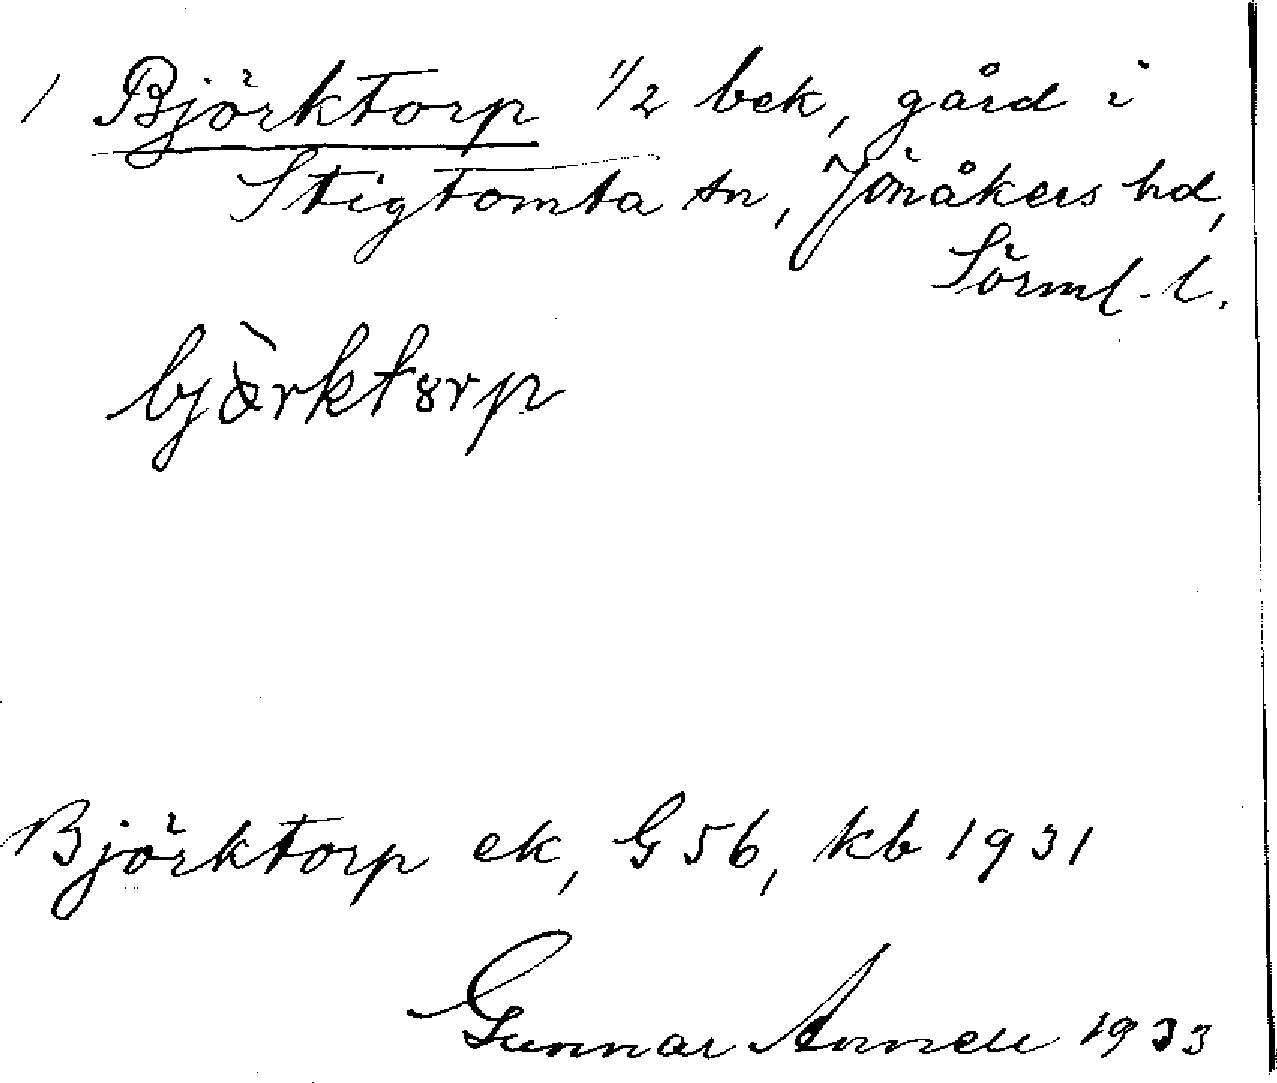 1 Björktorp 1/2 bek, gård i
Stigtomta sn, Jönåkers hd,
Sörml. l.
bjò̤rktorp
Björktorp ek, G 56, kb 1931
Gunnar Annell 1933